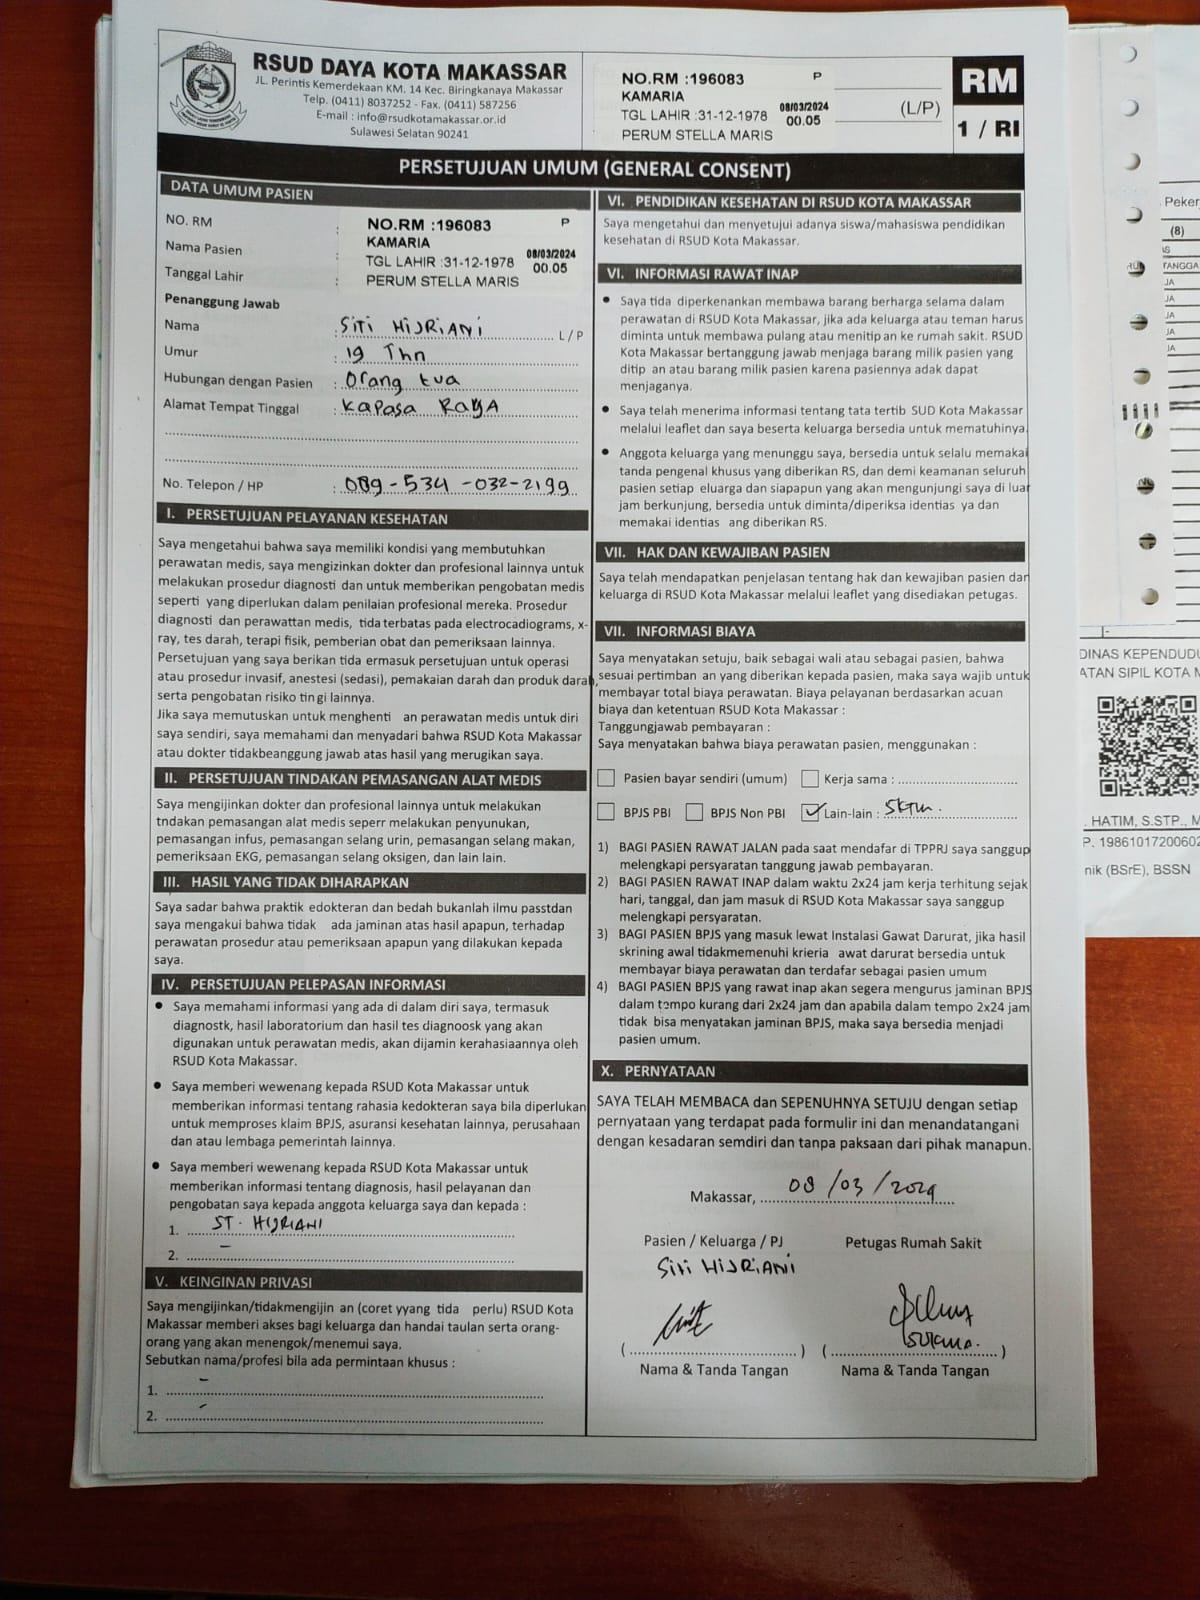 RSUD DAYA KOTA MAKASSAR
JL. Perintis Kemerdekaan KM. 14 Kec. Biringkanaya Makassar
Telp. (0411) 8037252 - Fax. (0411) 587256
E-mail : info@rsudkotamakassar.or.id
Sulawesi Selatan 90241
NO.RM :196083 P
KAMARIA
TGL LAHIR :31-12-1978 08/03/2024 00.05
PERUM STELLA MARIS
(L/P)
RM
1 / RI
PERSETUJUAN UMUM (GENERAL CONSENT)
DATA UMUM PASIEN
NO. RM :
Nama Pasien :
Tanggal Lahir :
NO.RM :196083 P
KAMARIA
TGL LAHIR :31-12-1978 08/03/2024 00.05
PERUM STELLA MARIS
Penanggung Jawab
Nama : SITI HIJRIANI L / P
Umur : 19 Thn
Hubungan dengan Pasien : Orang tua
Alamat Tempat Tinggal : Kapasa RAYA
No. Telepon / HP : 089-534-032-2199
I. PERSETUJUAN PELAYANAN KESEHATAN
Saya mengetahui bahwa saya memiliki kondisi yang membutuhkan
perawatan medis, saya mengizinkan dokter dan profesional lainnya untuk
melakukan prosedur diagnosti dan untuk memberikan pengobatan medis
seperti yang diperlukan dalam penilaian profesional mereka. Prosedur
diagnosti dan perawattan medis, tida terbatas pada electrocadiograms, x-
ray, tes darah, terapi fisik, pemberian obat dan pemeriksaan lainnya.
Persetujuan yang saya berikan tida ermasuk persetujuan untuk operasi
atau prosedur invasif, anestesi (sedasi), pemakaian darah dan produk darah,
serta pengobatan risiko tin gi lainnya.
Jika saya memutuskan untuk menghenti an perawatan medis untuk diri
saya sendiri, saya memahami dan menyadari bahwa RSUD Kota Makassar
atau dokter tidakbeanggung jawab atas hasil yang merugikan saya.
II. PERSETUJUAN TINDAKAN PEMASANGAN ALAT MEDIS
Saya mengijinkan dokter dan profesional lainnya untuk melakukan
tndakan pemasangan alat medis seperr melakukan penyunukan,
pemasangan infus, pemasangan selang urin, pemasangan selang makan,
pemeriksaan EKG, pemasangan selang oksigen, dan lain lain.
III. HASIL YANG TIDAK DIHARAPKAN
Saya sadar bahwa praktik edokteran dan bedah bukanlah ilmu passtdan
saya mengakui bahwa tidak ada jaminan atas hasil apapun, terhadap
perawatan prosedur atau pemeriksaan apapun yang dilakukan kepada
saya.
IV. PERSETUJUAN PELEPASAN INFORMASI
• Saya memahami informasi yang ada di dalam diri saya, termasuk
diagnostk, hasil laboratorium dan hasil tes diagnoosk yang akan
digunakan untuk perawatan medis, akan dijamin kerahasiaannya oleh
RSUD Kota Makassar.
• Saya memberi wewenang kepada RSUD Kota Makassar untuk
memberikan informasi tentang rahasia kedokteran saya bila diperlukan
untuk memproses klaim BPJS, asuransi kesehatan lainnya, perusahaan
dan atau lembaga pemerintah lainnya.
• Saya memberi wewenang kepada RSUD Kota Makassar untuk
memberikan informasi tentang diagnosis, hasil pelayanan dan
pengobatan saya kepada anggota keluarga saya dan kepada :
1. ST. HIJRIANI
2. -
V. KEINGINAN PRIVASI
Saya mengijinkan/tidakmengijin an (coret yyang tida perlu) RSUD Kota
Makassar memberi akses bagi keluarga dan handai taulan serta orang-
orang yang akan menengok/menemui saya.
Sebutkan nama/profesi bila ada permintaan khusus :
1. -
2. -
VI. PENDIDIKAN KESEHATAN DI RSUD KOTA MAKASSAR
Saya mengetahui dan menyetujui adanya siswa/mahasiswa pendidikan
kesehatan di RSUD Kota Makassar.
VI. INFORMASI RAWAT INAP
• Saya tida diperkenankan membawa barang berharga selama dalam
perawatan di RSUD Kota Makassar, jika ada keluarga atau teman harus
diminta untuk membawa pulang atau menitip an ke rumah sakit. RSUD
Kota Makassar bertanggung jawab menjaga barang milik pasien yang
ditip an atau barang milik pasien karena pasiennya adak dapat
menjaganya.
• Saya telah menerima informasi tentang tata tertib SUD Kota Makassar
melalui leaflet dan saya beserta keluarga bersedia untuk mematuhinya.
• Anggota keluarga yang menunggu saya, bersedia untuk selalu memakai
tanda pengenal khusus yang diberikan RS, dan demi keamanan seluruh
pasien setiap eluarga dan siapapun yang akan mengunjungi saya di luar
jam berkunjung, bersedia untuk diminta/diperiksa identias ya dan
memakai identias ang diberikan RS.
VII. HAK DAN KEWAJIBAN PASIEN
Saya telah mendapatkan penjelasan tentang hak dan kewajiban pasien dan
keluarga di RSUD Kota Makassar melalui leaflet yang disediakan petugas.
VII. INFORMASI BIAYA
Saya menyatakan setuju, baik sebagai wali atau sebagai pasien, bahwa
sesuai pertimban an yang diberikan kepada pasien, maka saya wajib untuk
membayar total biaya perawatan. Biaya pelayanan berdasarkan acuan
biaya dan ketentuan RSUD Kota Makassar :
Tanggungjawab pembayaran :
Saya menyatakan bahwa biaya perawatan pasien, menggunakan :
Pasien bayar sendiri (umum) Kerja sama :
BPJS PBI BPJS Non PBI ✓ Lain-lain : SKTM.
1) BAGI PASIEN RAWAT JALAN pada saat mendafar di TPPRJ saya sanggup
melengkapi persyaratan tanggung jawab pembayaran.
2) BAGI PASIEN RAWAT INAP dalam waktu 2x24 jam kerja terhitung sejak
hari, tanggal, dan jam masuk di RSUD Kota Makassar saya sanggup
melengkapi persyaratan.
3) BAGI PASIEN BPJS yang masuk lewat Instalasi Gawat Darurat, jika hasil
skrining awal tidakmemenuhi krieria awat darurat bersedia untuk
membayar biaya perawatan dan terdafar sebagai pasien umum
4) BAGI PASIEN BPJS yang rawat inap akan segera mengurus jaminan BPJS
dalam tempo kurang dari 2x24 jam dan apabila dalam tempo 2x24 jam
tidak bisa menyatakan jaminan BPJS, maka saya bersedia menjadi
pasien umum.
X. PERNYATAAN
SAYA TELAH MEMBACA dan SEPENUHNYA SETUJU dengan setiap
pernyataan yang terdapat pada formulir ini dan menandatangani
dengan kesadaran semdiri dan tanpa paksaan dari pihak manapun.
Makassar, 08/03/2024
Pasien / Keluarga / PJ Petugas Rumah Sakit
Siti HIJRIANI
Nama & Tanda Tangan Nama & Tanda Tangan
Peker
(8)
TANGGA
DINAS KEPENDUDU
ATAN SIPIL KOTA M
. HATIM, S.STP., M
P. 19861017200602
nik (BSrE), BSSN